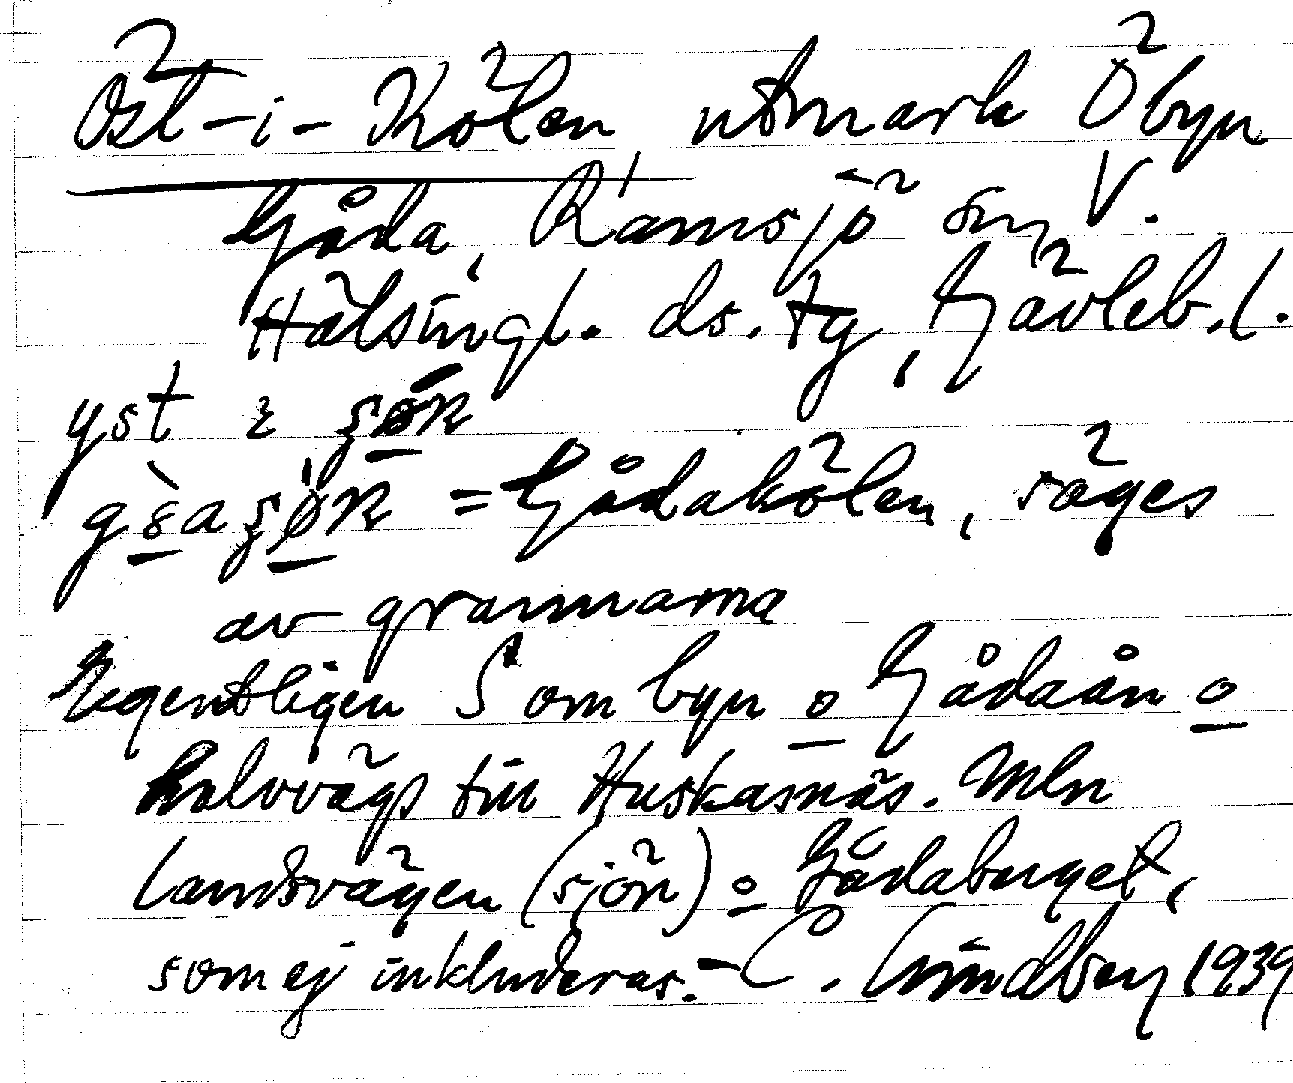 Öst-i-Kölen utmark Ö byn
Gåda, Ramsjö sn V.
Hälsingl. ds. tg, Gävleb. l.
yst i
= Gådakölen, säges
av grannarna
Egentligen S om byn o Gådaån o
halvvägs till Huskasnäs. Mln
landsvägen (sjön) o Gådaberget,
som ej inkluderas. - C. Lindberg 1939